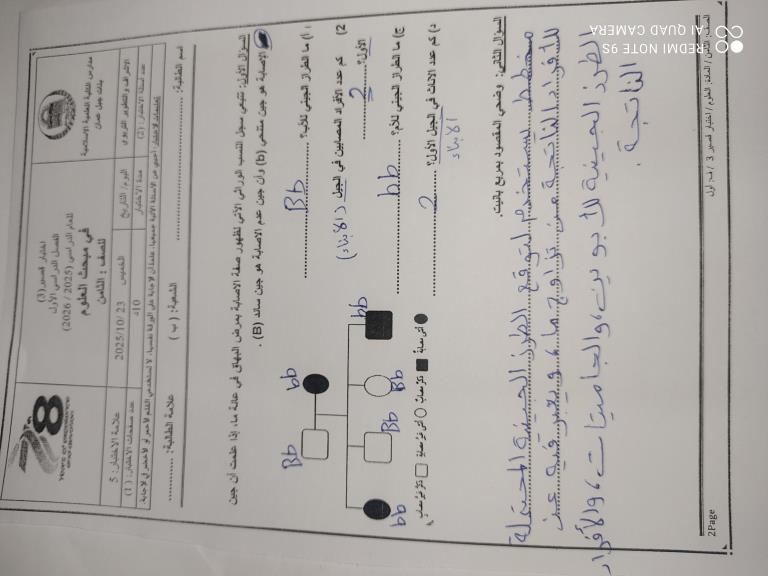 مدارس الثقافة العلمية الاسلامية
بنات جبل عمان
اختبار قصير (3)
الفصل الدراسي الأول
للعام الدراسي (2025 / 2026)
في مبحث العلوم
للصف : الثامن
78
الاشراف والتطوير التربوي
اليوم / التاريخ
الخميس
2025/10/23
علامة الاختبار: 5
عدد أسئلة الاختبار: (2)
مدة الاختبار
10د
عدد صفحات الاختبار: (1)
اسم الطالبة:
الشعبة: ( ب )
علامة الطالبة:
السؤال الأول: تتبعي سجل النسب الوراثي الآتي لظهور صفة الاصابة بمرض البهاق في عائلة ما، إذا علمت أن جين
الإصابة هو جين متنحي (b) وأن جين عدم الاصابة هو جين سائد (B) .
أ) ما الطراز الجيني للأب؟ Bb
2) كم عدد الأفراد المصابين في الجيل
الأول؟ 2
(الأبناء)
ج) ما الطراز الجيني للأم؟ bb
د) كم عدد الاناث في الجيل الأول؟ 2
الأبناء
Bb bb
bb Bb Bb bb
ذكر غير مصاب أنثى غير مصابة ذكر مصاب أنثى مصابة
السؤال الثاني: وضحي المقصود بمربع بانيت.
مخطط يستخدم لتوقع الطرز الجينية المحتملة
للأفراد الناتجة عن تزاوج ما، ويحتوي فيه على
الطرز الجينية للأبوين، والجاميتات، والأفراد
الناتجة.
2Page
الصف: الثامن / المادة: العلوم / اختبار قصير 3 / ف. أول
REDMI NOTE 9S
AI QUAD CAMERA